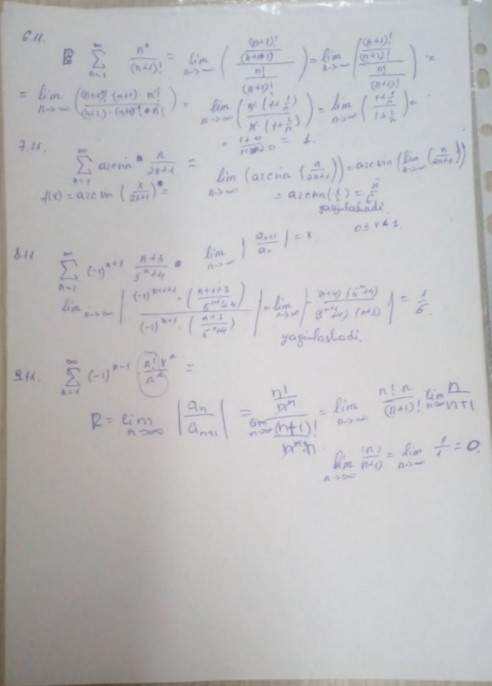 6.11.
\sum_{n=1}^{\infty} \frac{n!}{(n+1)!} = \lim_{n→∞} ( \frac{\frac{(n+1)!}{(n+1+1)!}}{\frac{n!}{(n+1)!}} ) = \lim_{n→∞} ( \frac{\frac{(n+1)!}{(n+2)!}}{\frac{n!}{(n+1)!}} ) =
= \lim_{n→∞} ( \frac{(n+1)! (n+1) · n!}{(n+2) · (n+1)! · n!} ) = \lim_{n→∞} ( \frac{n · (1 + \frac{1}{n})}{n · (1 + \frac{2}{n})} ) = \lim_{n→∞} ( \frac{1 + \frac{1}{n}}{1 + \frac{2}{n}} ) =
= \frac{1+0}{1+0} = 1.
7.11.
\sum_{n=1}^{\infty} arcsin \frac{n}{2n+1} = \lim_{n→∞} (arcsin ( \frac{n}{2n+1} )) = arcsin ( \lim_{n→∞} ( \frac{n}{2n+1} ))
f(x) = arcsin ( \frac{x}{2x+1} ) = = arcsin ( \frac{1}{2} ) = \frac{π}{6}
yaqinlashadi.
8.11
\sum_{n=1}^{\infty} (-1)^{n+1} \frac{n+3}{5^n+4} \lim_{n→∞} | \frac{a_{n+1}}{a_n} | = r 0 ≤ r < 1.
\lim_{n→∞} | \frac{(-1)^{n+1+1} · ( \frac{n+1+3}{5^{n+1}+4} )}{(-1)^{n+1} · ( \frac{n+3}{5^n+4} )} | = \lim_{n→∞} | - \frac{(n+4) (5^n+4)}{(5^{n+1}+4) (n+3)} | = \frac{1}{5}.
yaqinlashadi.
9.11. \sum_{n=1}^{\infty} (-1)^{n-1} \frac{n! x^n}{n^n} =
R = \lim_{n→∞} | \frac{a_n}{a_{n+1}} | = \lim_{n→∞} \frac{\frac{n!}{n^n}}{\frac{(n+1)!}{n^n · n}} = \lim_{n→∞} \frac{n! n}{(n+1)!} \lim_{n→∞} \frac{n}{n+1}
\lim_{n→∞} \frac{(n)}{(n+1)} = \lim_{n→∞} \frac{1}{1} = 0.